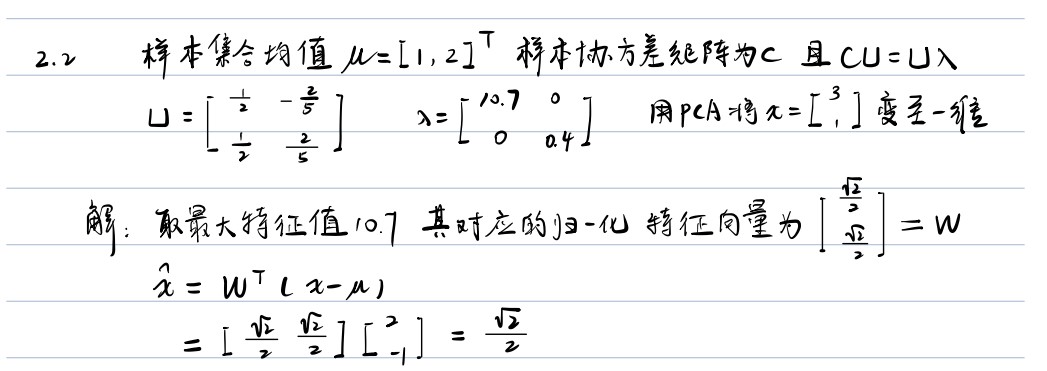 2.2 样本集合均值 μ=[1,2]ᵀ 样本协方差矩阵为C 且 CU=Uλ
U = [1/2 -2/5; 1/2 2/5] λ= [10.7 0; 0 0.4] 用PCA将 x=[3; 1] 变至一维
解: 取最大特征值10.7 其对应的归一化 特征向量为 [√2/2; √2/2] = W
x̂ = Wᵀ(x-μ)
= [√2/2 √2/2] [2; -1] = √2/2